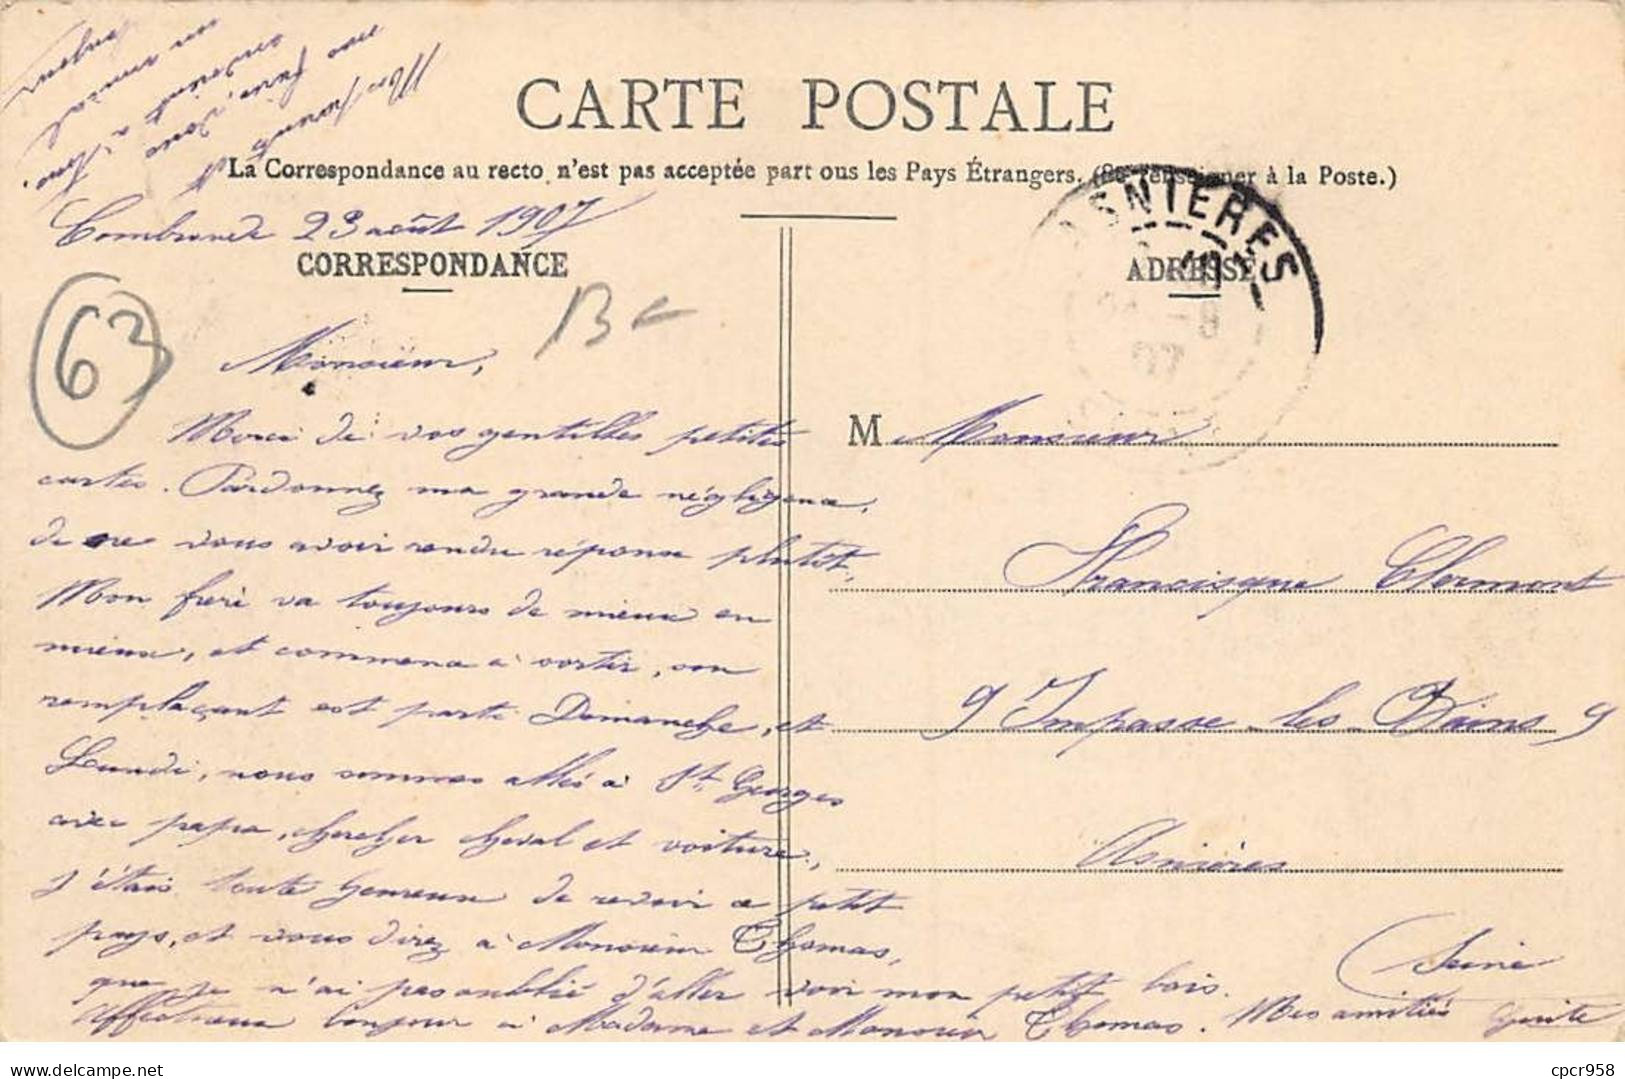 CARTE POSTALE
La Correspondance au recto n'est pas acceptée part ous les Pays Étrangers. (Se renseigner à la Poste.)
Combronde 23 août 1907
CORRESPONDANCE
ADRESSE
ASNIERES
63
B
Monsieur,
Merci de vos gentilles petites
cartes. Pardonnez ma grande négligence,
de ne vous avoir rendu réponse plutôt,
Mon frère va toujours de mieux en
mieux, et commence à sortir, son
remplaçant est parti Dimanche, et
Lundi, nous sommes allés à St Georges
avec papa, chercher cheval et voiture,
j'étais toute heureuse de revoir ce petit
pays, et vous direz à Monsieur Thomas,
que je n'ai pas oublié d'aller voir mon petit bois.
Affectueux bonjour à Madame et Monsieur Thomas. Mes amitiés
M Monsieur
Francisque Clermont
9 Impasse les Bains 9
Asnières
Seine
cpcr958